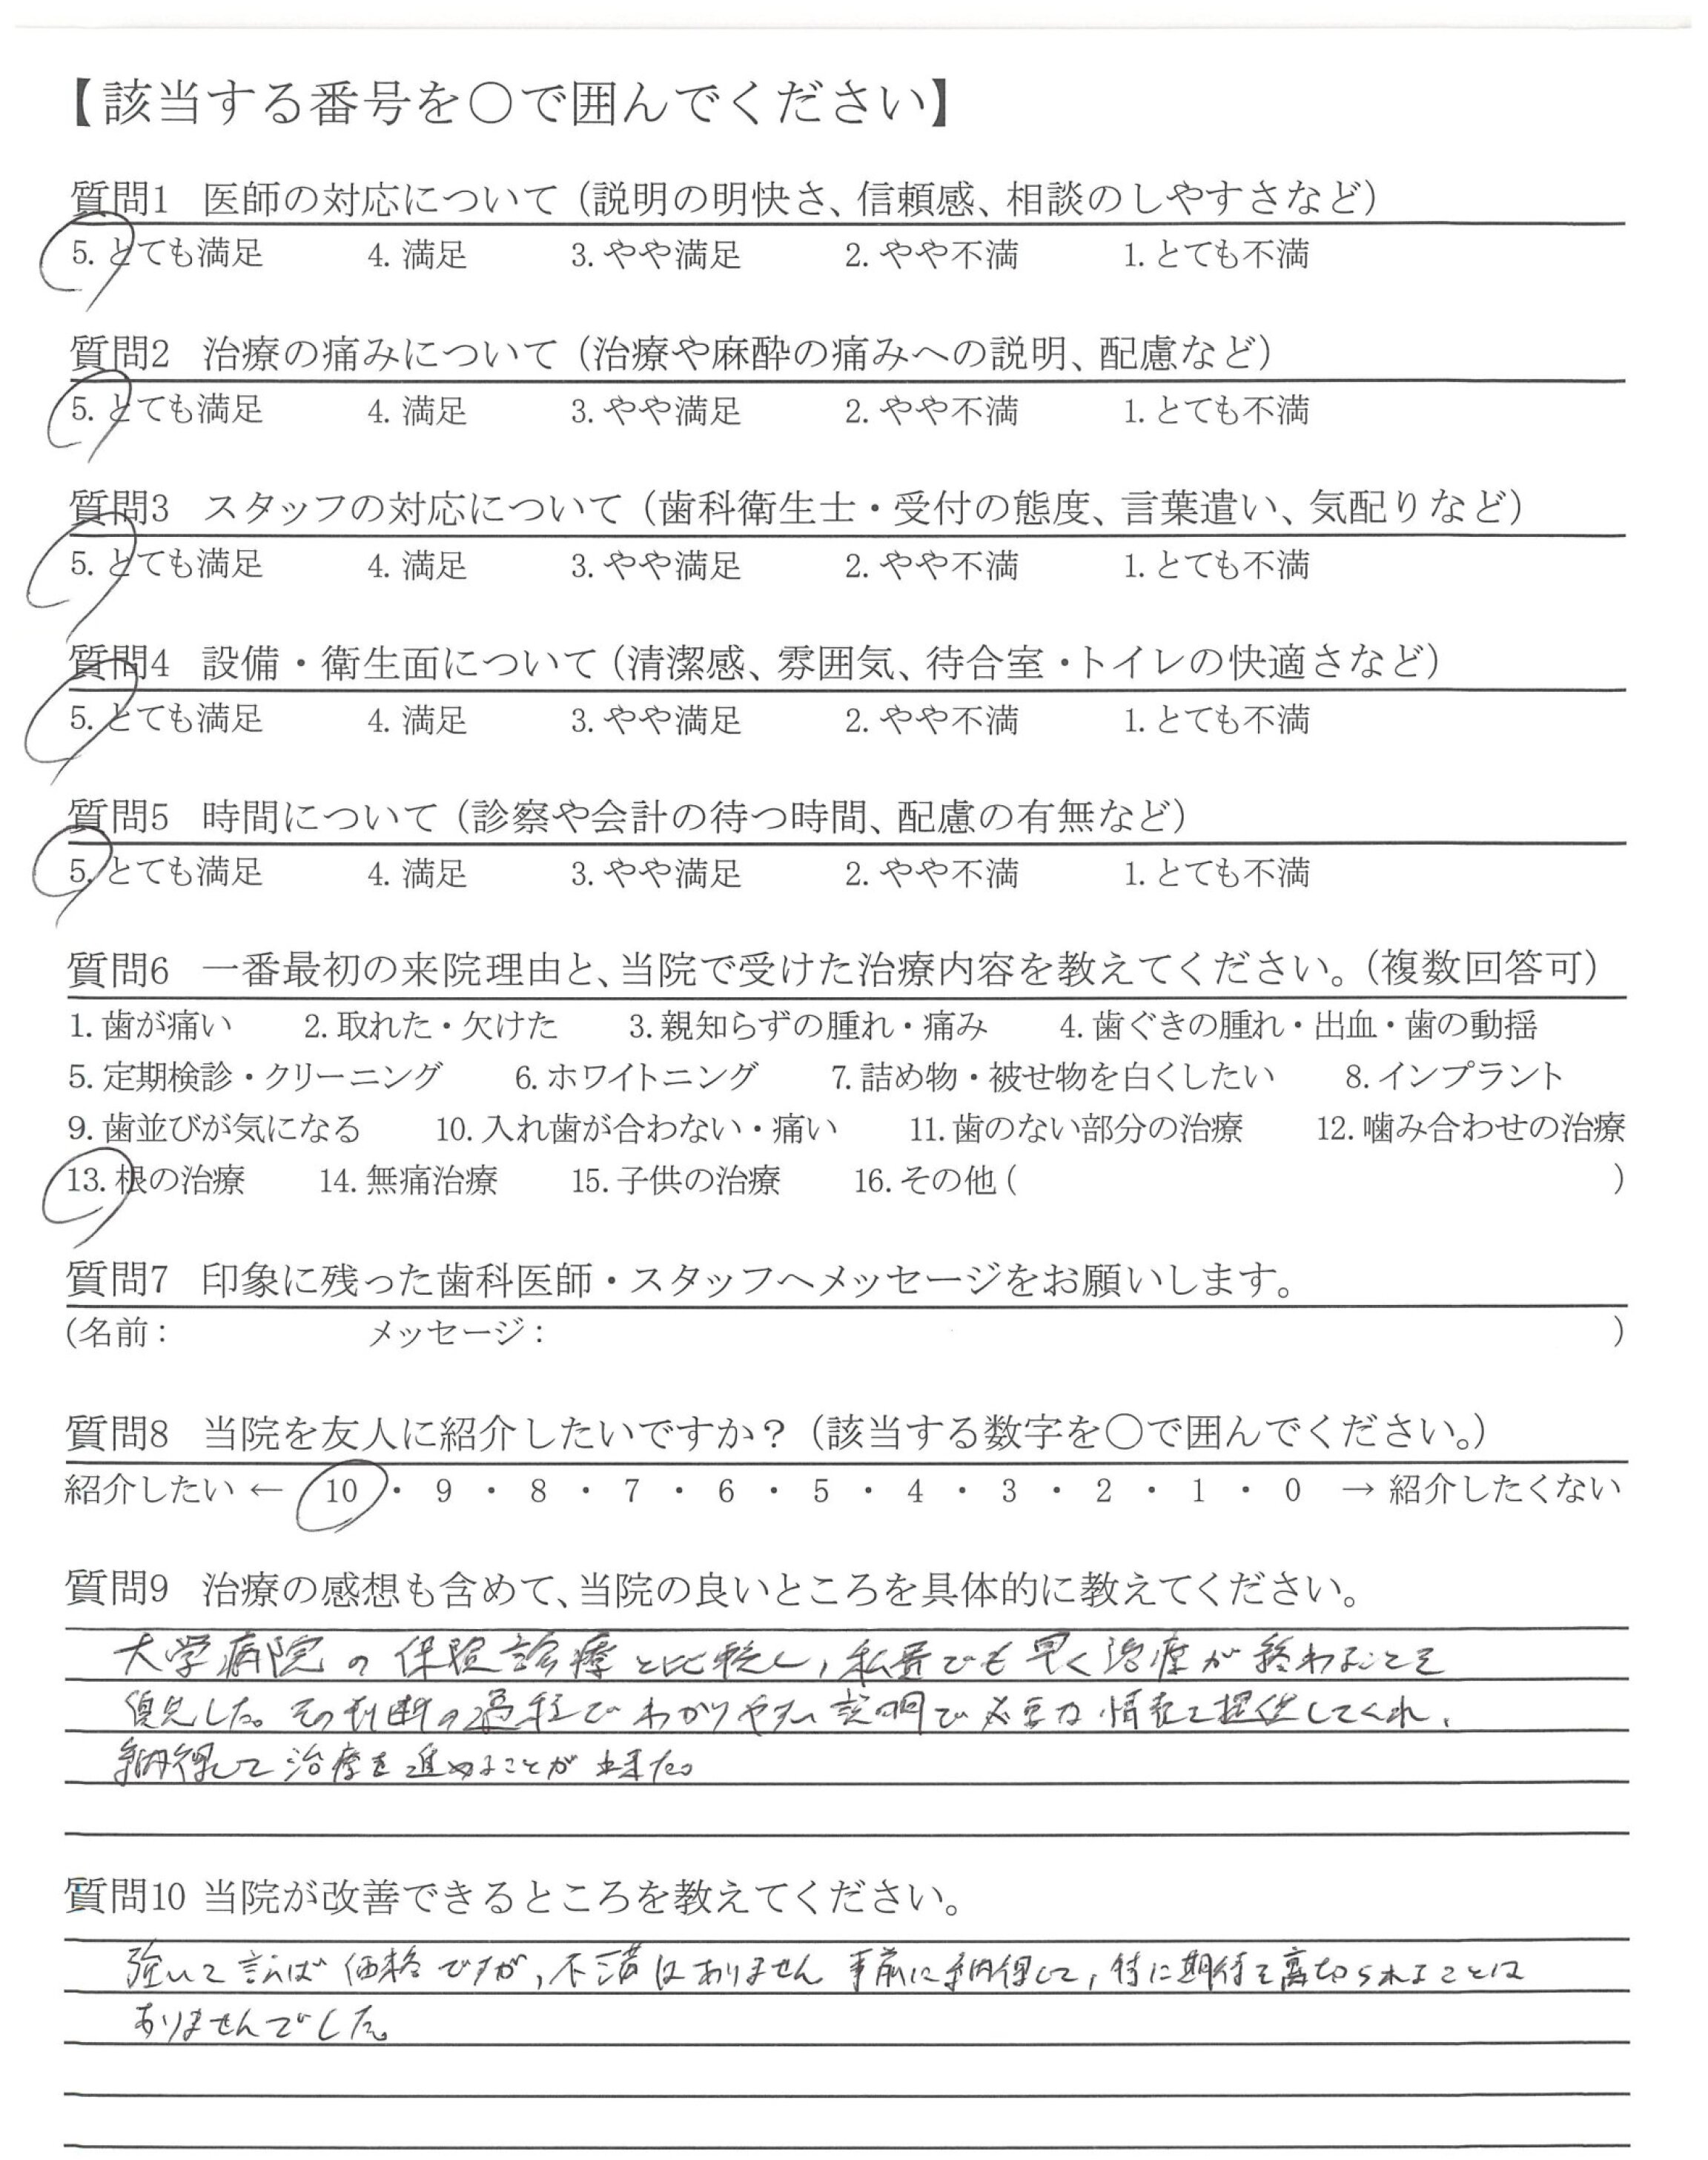 【該当する番号を〇で囲んでください】
質問1 医師の対応について（説明の明快さ、信頼感、相談のしやすさなど）
5. とても満足 4. 満足 3. やや満足 2. やや不満 1. とても不満
質問2 治療の痛みについて（治療や麻酔の痛みへの説明、配慮など）
5. とても満足 4. 満足 3. やや満足 2. やや不満 1. とても不満
質問3 スタッフの対応について（歯科衛生士・受付の態度、言葉遣い、気配りなど）
5. とても満足 4. 満足 3. やや満足 2. やや不満 1. とても不満
質問4 設備・衛生面について（清潔感、雰囲気、待合室・トイレの快適さなど）
5. とても満足 4. 満足 3. やや満足 2. やや不満 1. とても不満
質問5 時間について（診察や会計の待つ時間、配慮の有無など）
5. とても満足 4. 満足 3. やや満足 2. やや不満 1. とても不満
質問6 一番最初の来院理由と、当院で受けた治療内容を教えてください。（複数回答可）
1. 歯が痛い 2. 取れた・欠けた 3. 親知らずの腫れ・痛み 4. 歯ぐきの腫れ・出血・歯の動揺
5. 定期検診・クリーニング 6. ホワイトニング 7. 詰め物・被せ物を白くしたい 8. インプラント
9. 歯並びが気になる 10. 入れ歯が合わない・痛い 11. 歯のない部分の治療 12. 噛み合わせの治療
13. 根の治療 14. 無痛治療 15. 子供の治療 16. その他（ ）
質問7 印象に残った歯科医師・スタッフへメッセージをお願いします。
（名前： メッセージ： ）
質問8 当院を友人に紹介したいですか？（該当する数字を〇で囲んでください。）
紹介したい ← 10 ・ 9 ・ 8 ・ 7 ・ 6 ・ 5 ・ 4 ・ 3 ・ 2 ・ 1 ・ 0 → 紹介したくない
質問9 治療の感想も含めて、当院の良いところを具体的に教えてください。
大学病院の保険診療と比較し、私費でも早く治療が終わることを
優先した。その判断の過程でわかりやすい説明で必要な情報を提供してくれ、
納得して治療を進めることが出来た。
質問10 当院が改善できるところを教えてください。
強いて言えば価格ですが、不満はありません 事前に納得して、特に期待を裏切られることは
ありませんでした。